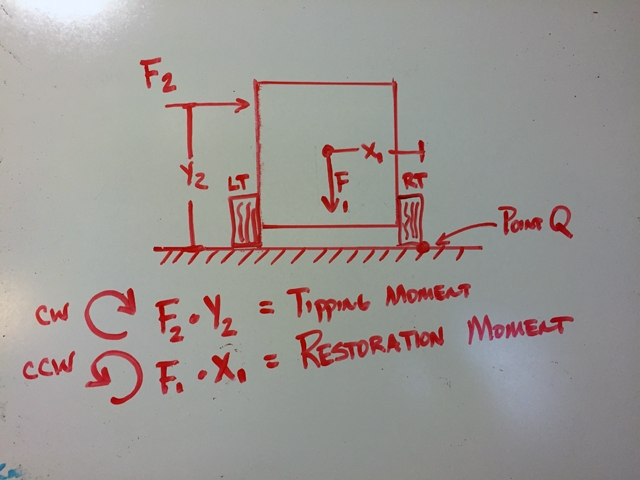 F2
Y2
LT
X1
F1
RT
Point Q
CW F2 · Y2 = Tipping Moment
CCW F1 · X1 = Restoration Moment